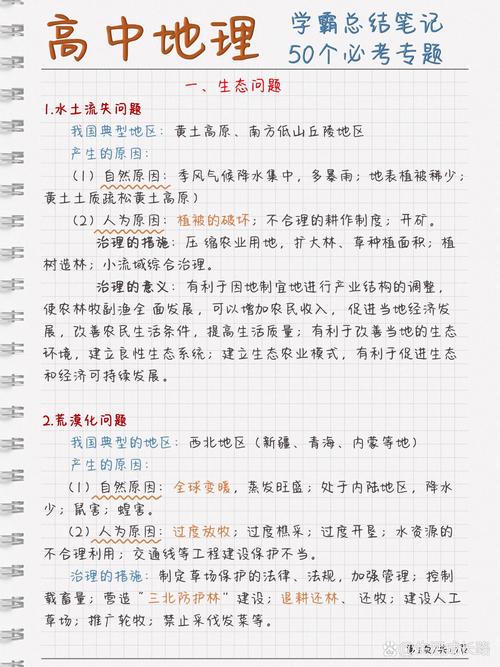 高中地理
学霸总结笔记
50个必考专题
一、生态问题
1.水土流失问题
我国典型地区：黄土高原、南方低山丘陵地区
产生的原因：
（1）自然原因：季风气候降水集中，多暴雨；地表植被稀少；
黄土土质疏松黄土高原）
（2）人为原因：植被的破坏；不合理的耕作制度；开矿。
治理的措施：压 缩农业用地，扩大林、草种植面积；植
树造林；小流域综合治理。
治理的意义：有利于因地制宜地进行产业结构的调整，
使农林牧副渔全 面发展，可以增加农民收入， 促进当地经济发
展，改善农民生活条件，提高生活质量；有利于改善当地的生态
环境，建立良性生态系统；建立生态农业模式，有利于促进生态
和经济可持续发展。
2.荒漠化问题
我国典型的地区：西北地区（新疆、青海、内蒙等地）
产生的原因：
（1）自然原因：全球变暖，蒸发旺盛；处于内陆地区，降水
少；鼠害；蝗害。
（2）人为原因：过度放牧；过度樵采；过度开垦；水资源的
不合理利用；交通线等工程建设保护不当。
治理的措施：制定草场保护的法律、法规，加强管理；控制
载畜量；营造“三北防护林”建设；退耕还林、 还牧；建设人工
草场；推广轮牧；禁止采伐发菜等。